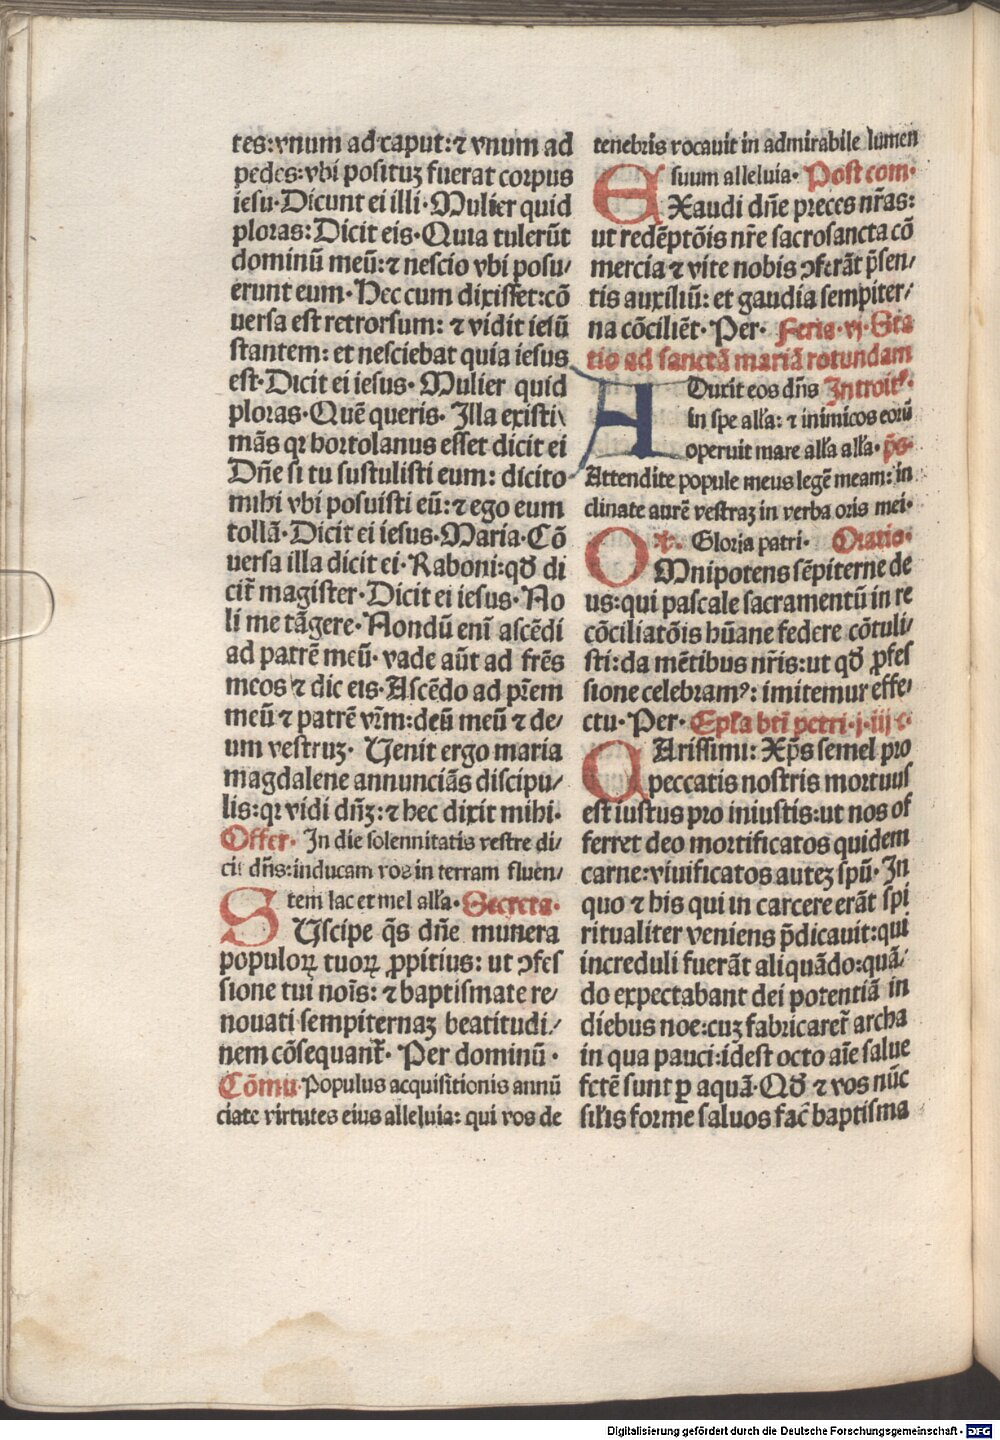 tes:vnum ad caput:⁊ vnum ad
pedes:vbi posituꝫ fuerat corpus
iesu·Dicunt ei illi·Mulier quid
ploras:Dicit eis·Quia tulerūt
dominū meū:⁊ nescio vbi posu⸗
erunt eum·Hec cum dixisset:cō
uersa est retrorsum: ⁊ vidit iesū
stantem: et nesciebat quia iesus
est·Dicit ei iesus· Mulier quid
ploras·Quē queris· Illa existi
mās qꝛ hortolanus esset dicit ei
Dñe si tu sustulisti eum: dicito
mihi vbi posuisti eū:⁊ ego eum
tollā·Dicit ei iesus·Maria·Cō
uersa illa dicit ei·Raboni:qđ di
cit̄ magister·Dicit ei iesus·No
li me tāgere·Nondū enī ascēdi
ad patrē meū·vade aūt ad frēs
meos ⁊ dic eis·Ascēdo ad p̄rem
meū ⁊ patrē vr̄m:deū meū ⁊ de⸗
um vestruꝫ· Uenit ergo maria
magdalene annunciās discipu⸗
lis:qꝛ vidi dñꝫ:⁊ hec dixit mihi·
Offer· In die solennitatis vestre di⸗
cit dñs:inducam vos in terram fluen⸗
tem lac et mel alľa·Secreta·
SUscipe q̄s dñe munera
populoꝝ tuoꝝ ꝓpitius: ut ꝯfes
sione tui noīs: ⁊ baptismate re⸗
nouati sempiternaꝫ beatitudi⸗
nem cōsequant̄· Per dominū·
Cōmu·Populus acquisitionis annū
ciate virtutes eius alleluia: qui vos de
tenebris vocauit in admirabile lumen
suum alleluia· Post com·
EXaudi dñe preces nr̄as:
ut redēptōis nr̄e sacrosancta cō
mercia ⁊ vite nobis ꝯferāt p̄sen⸗
tis auxiliū: et gaudia sempiter⸗
na cōciliēt·Per· Feria·vj·Sta
tio ad sanctā mariā rotundam
ADuxit eos dñs Introit·
in spe alľa: ⁊ inimicos eorū
operuit mare alľa alľa·p̄s·
Attendite popule meus legē meam: in
clinate aurē vestraꝫ in verba oris mei·
℣. Gloria patri· Oratio·
OMnipotens sēpiterne de
us:qui pascale sacramentū in re
cōciliatōis hūane federe cōtuli⸗
sti:da mētibus nr̄is:ut qđ ꝓfes
sione celebramꝰ: imitemur effe⸗
ctu·Per· Epľa bti petri·j·iij c·
CArissimi: Xp̄s semel pro
peccatis nostris mortuus
est iustus pro iniustis:ut nos of
ferret deo mortificatos quidem
carne:viuificatos auteꝫ spū·In
quo ⁊ his qui in carcere erāt spi
ritualiter veniens p̄dicauit:qui
increduli fuerāt aliquādo:quā⸗
do expectabant dei potentiā in
diebus noe:cuꝫ fabricaret̄ archa
in qua pauci:idest octo aīe salue
fctē sunt ꝑ aquā·Qđ ⁊ vos nūc
siľis forme saluos fac̄ baptisma
Digitalisierung gefördert durch die Deutsche Forschungsgemeinschaft - DFG